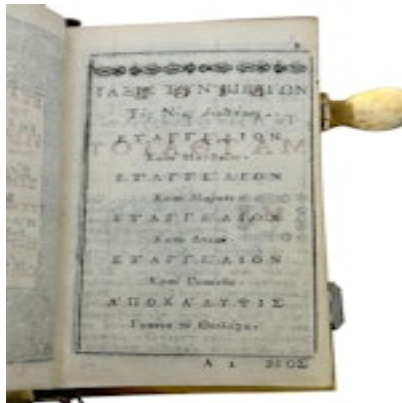 ΤΑΞΙΣ ΤΩΝ ΒΙΒΛΙΩΝ
Τῆς Νέας Διαθήκης.
ΕΥΑΓΓΕΛΙΟΝ
Κατὰ Ματθαῖον.
ΕΥΑΓΓΕΛΙΟΝ
Κατὰ Μάρκον.
ΕΥΑΓΓΕΛΙΟΝ
Κατὰ Λουκᾶν.
ΕΥΑΓΓΕΛΙΟΝ
Κατὰ Ἰωάννην.
ἈΠΟΚΑΛΥΨΙΣ
Ἰωάννου τοῦ Θεολόγου.
A 2 ΒΙΟΣ